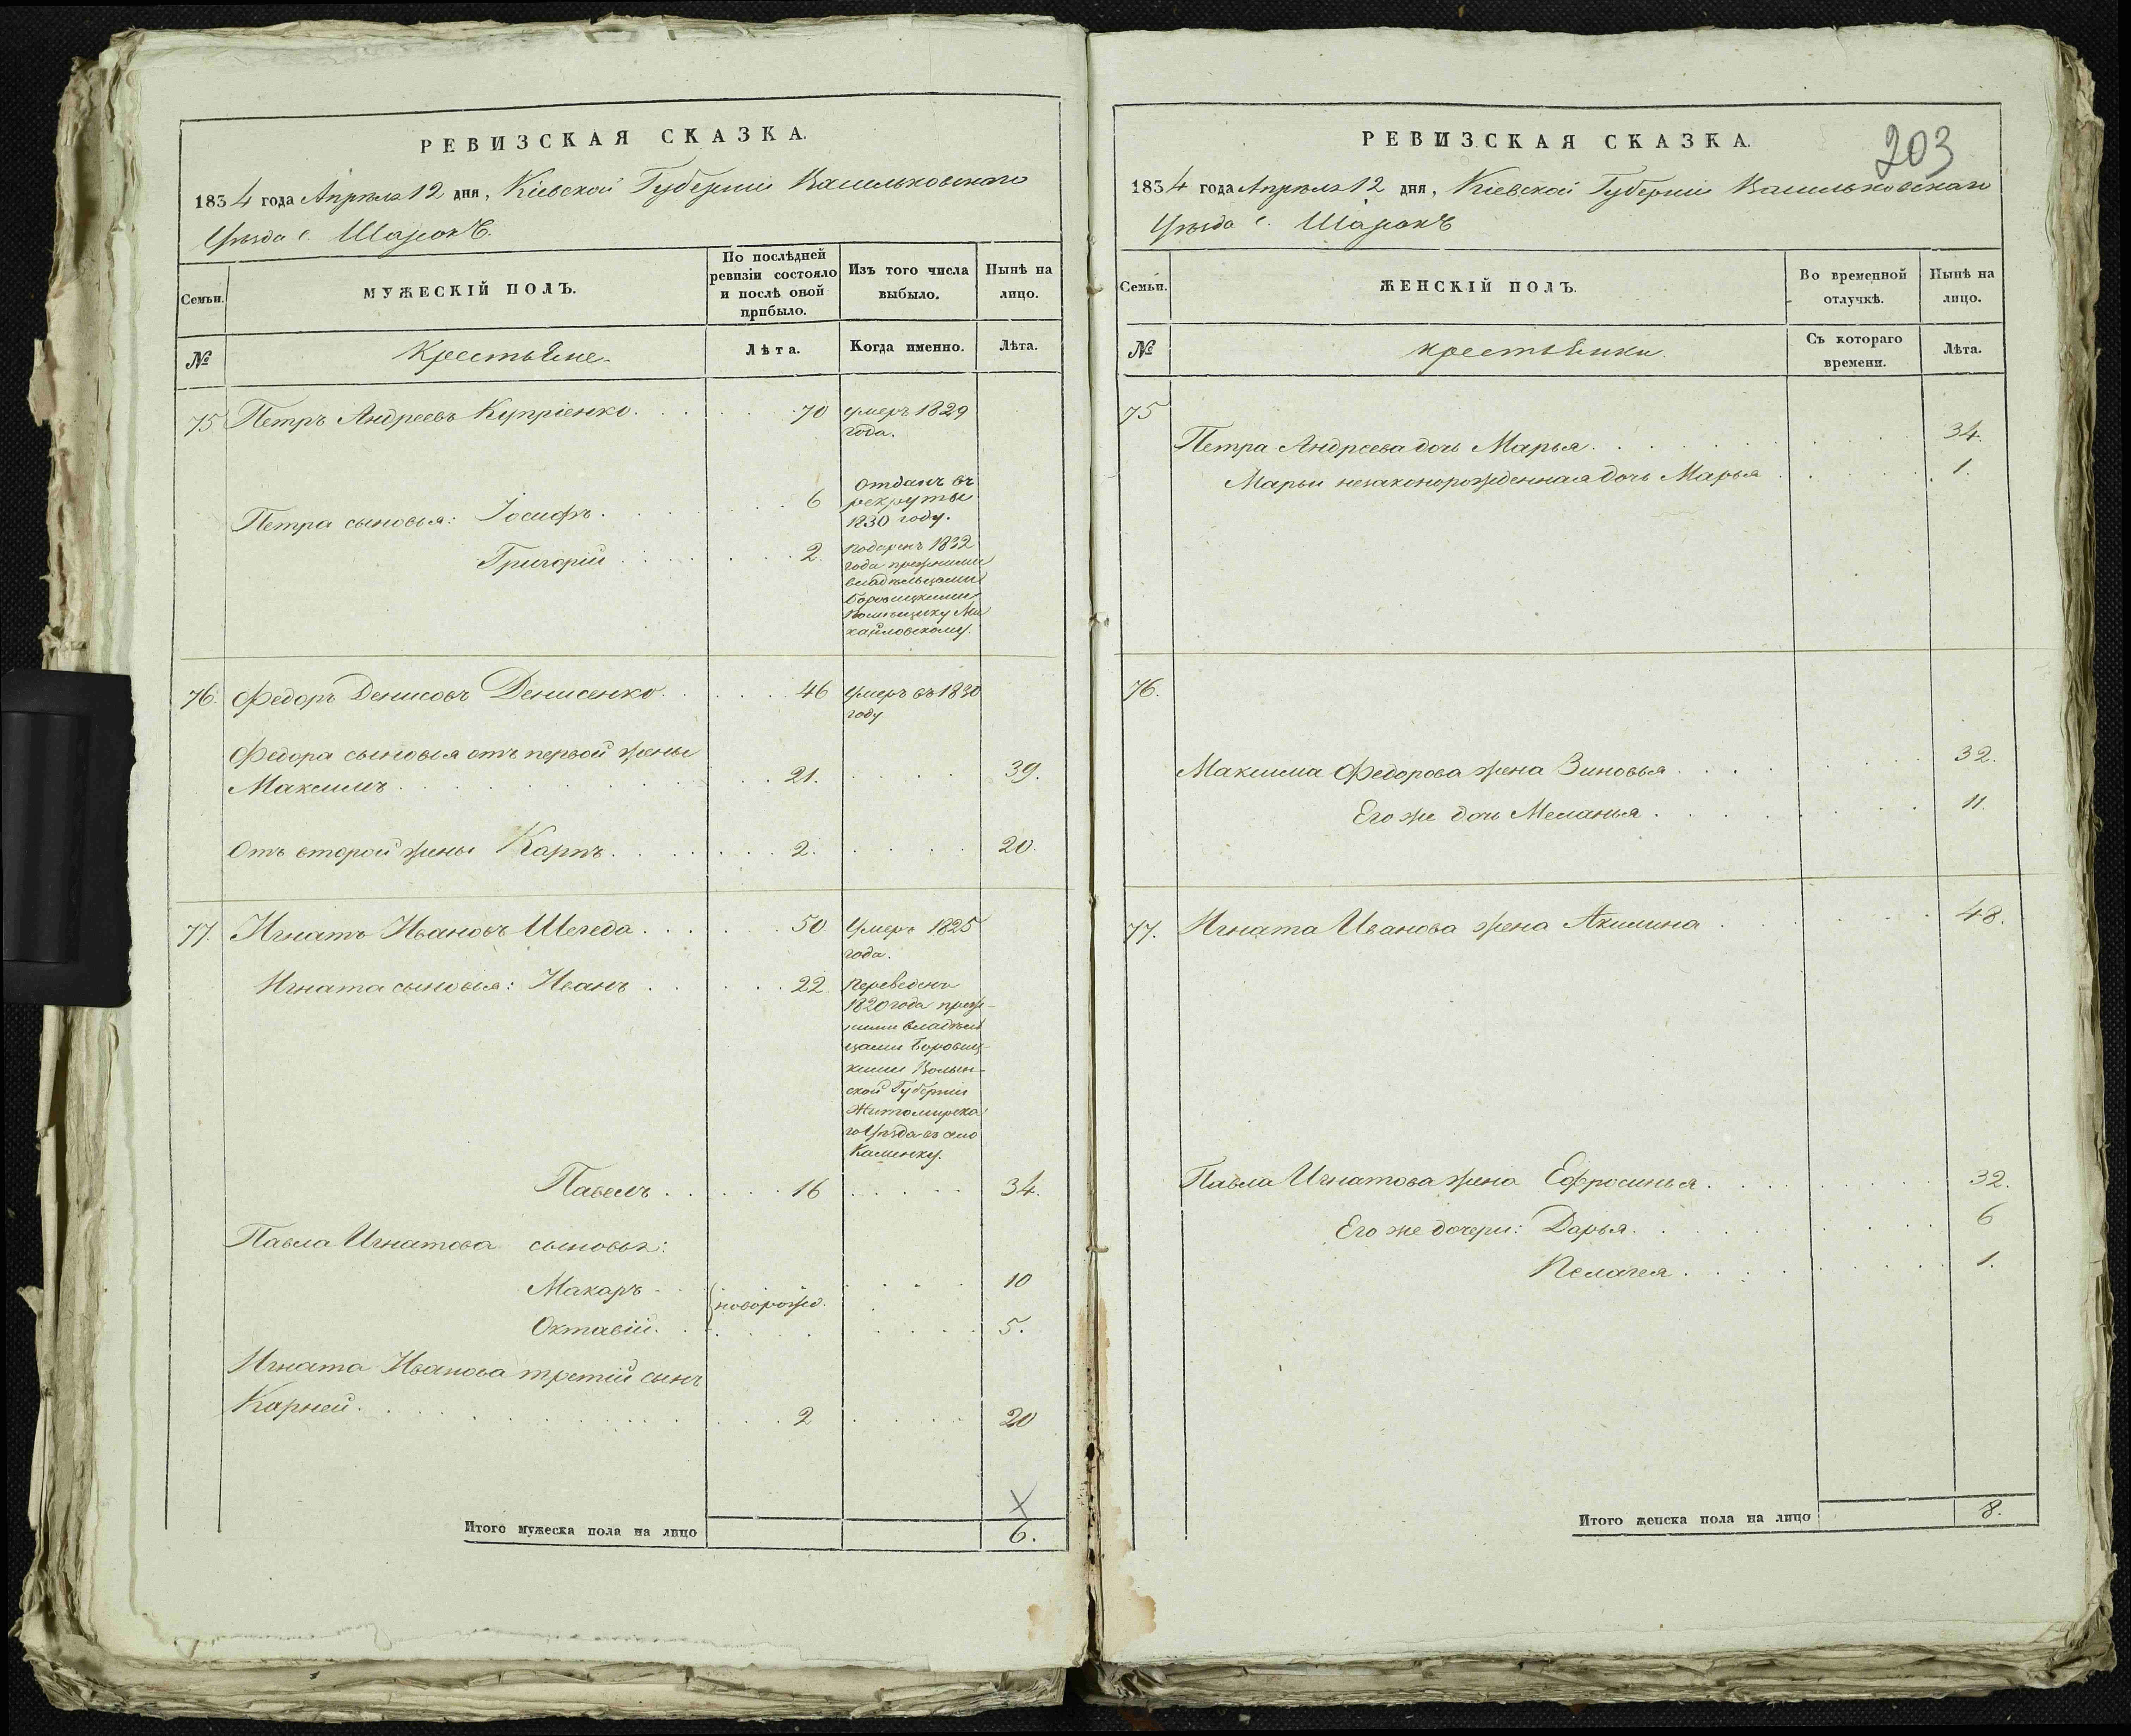 РЕВИЗСКАЯ СКАЗКА.
1834 года Апрѣля 12 дня, Кіевской Губерніи Васильковскаго
Уѣзда с. Шарокъ.
Семьи.
МУЖЕСКІЙ ПОЛЪ.
По послѣдней
ревизіи состояло
и послѣ оной
прибыло.
Изъ того числа
выбыло.
Нынѣ на
лицо.
№
Крестьяне
Лѣта.
Когда именно.
Лѣта.
75 Петръ Андреевъ Купріенко 70 умеръ 1829
года.
Петра сыновья: Іосифъ 6 отданъ въ
рекруты
1830 году.
Григорій 2. подаренъ 1832
года прежними
владѣльцами
Боровицкими
Помѣщику Ми
хайловскому.
76. Федоръ Денисовъ Денисенко 46 Умеръ въ 1830
году
Федора сыновья отъ первой жены
Максимъ 21. 39.
Отъ второй жены Карпъ 2. 20.
77. Игнатъ Ивановъ Шегеда 50 Умеръ 1825
года.
Игната сыновья: Иванъ 22 переведенъ
1820 года преж-
ними владѣль
цами Боровиц-
кими Волын-
ской Губерніи
Житомирска
го Уѣзда въ село
Каменку.
Павелъ 16 34.
Павла Игнатова сыновья:
Макаръ 10
новорожд.
Октавій 5.
Игната Иванова третій сынъ
Карней 2 20
Итого мужеска пола на лицо 6.
203
РЕВИЗСКАЯ СКАЗКА.
1834 года Апрѣля 12 дня, Кіевской Губерніи Васильковскаго
Уѣзда с. Шарокъ
Семьи.
ЖЕНСКІЙ ПОЛЪ.
Во временной
отлучкѣ.
Нынѣ на
лицо.
№
крестьянки
Съ котораго
времени.
Лѣта.
75
Петра Андреева дочь Марья 34.
Марьи незаконорожденная дочь Марья 1.
76.
Максима Федорова жена Зиновья 32.
Его же дочь Меланья 11.
77. Игната Иванова жена Акилина 48.
Павла Игнатова жена Ефросинья 32.
Его же дочери: Дарья 6
Пелагея 1.
Итого женска пола на лицо 8.